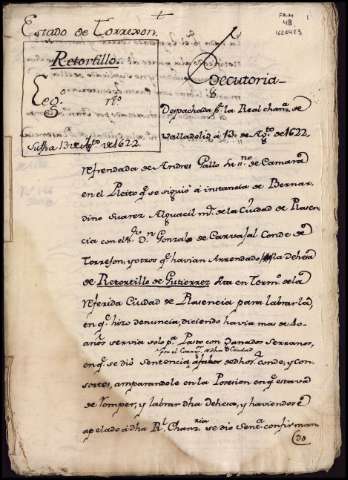 Estado de Torrexon.
FR.M
48
1622413
1
Retortillo.
Leg.º nº
Su fha 13 de Agto de 1622
Executoria
Despachada pr la Real chanª de
Valladolid à 13 de Agto de 1622
refrendada de Andres Pallo de Camara
en el Pleito qe se siguiò à instancia de Bernar
dino Suarez Alguacil mr de la Ciudad de Plasen
cia con el Sr Dn Gonzalo de Carvajal Conde de
Torrejon, y otros qe havian Arrendado la deheª
de Retortillo de Gutierrez sita en Termº de la
referida Ciudad de Plasencia para labrarla,
en qe hizo denuncia, diciendo havia mas de 40
años servia solo pª Pasto con Ganados Serranos,
por el Corregr de dha Ciudad
en qe se diò Sentencia à favor de dho Conde, y con
sortes, amparandole en la Posesion en qe estavan
de romper, y labrar dha Dehesa, y haviendose
apelado à dha Rl Chanria se diò Sentª confirman
do